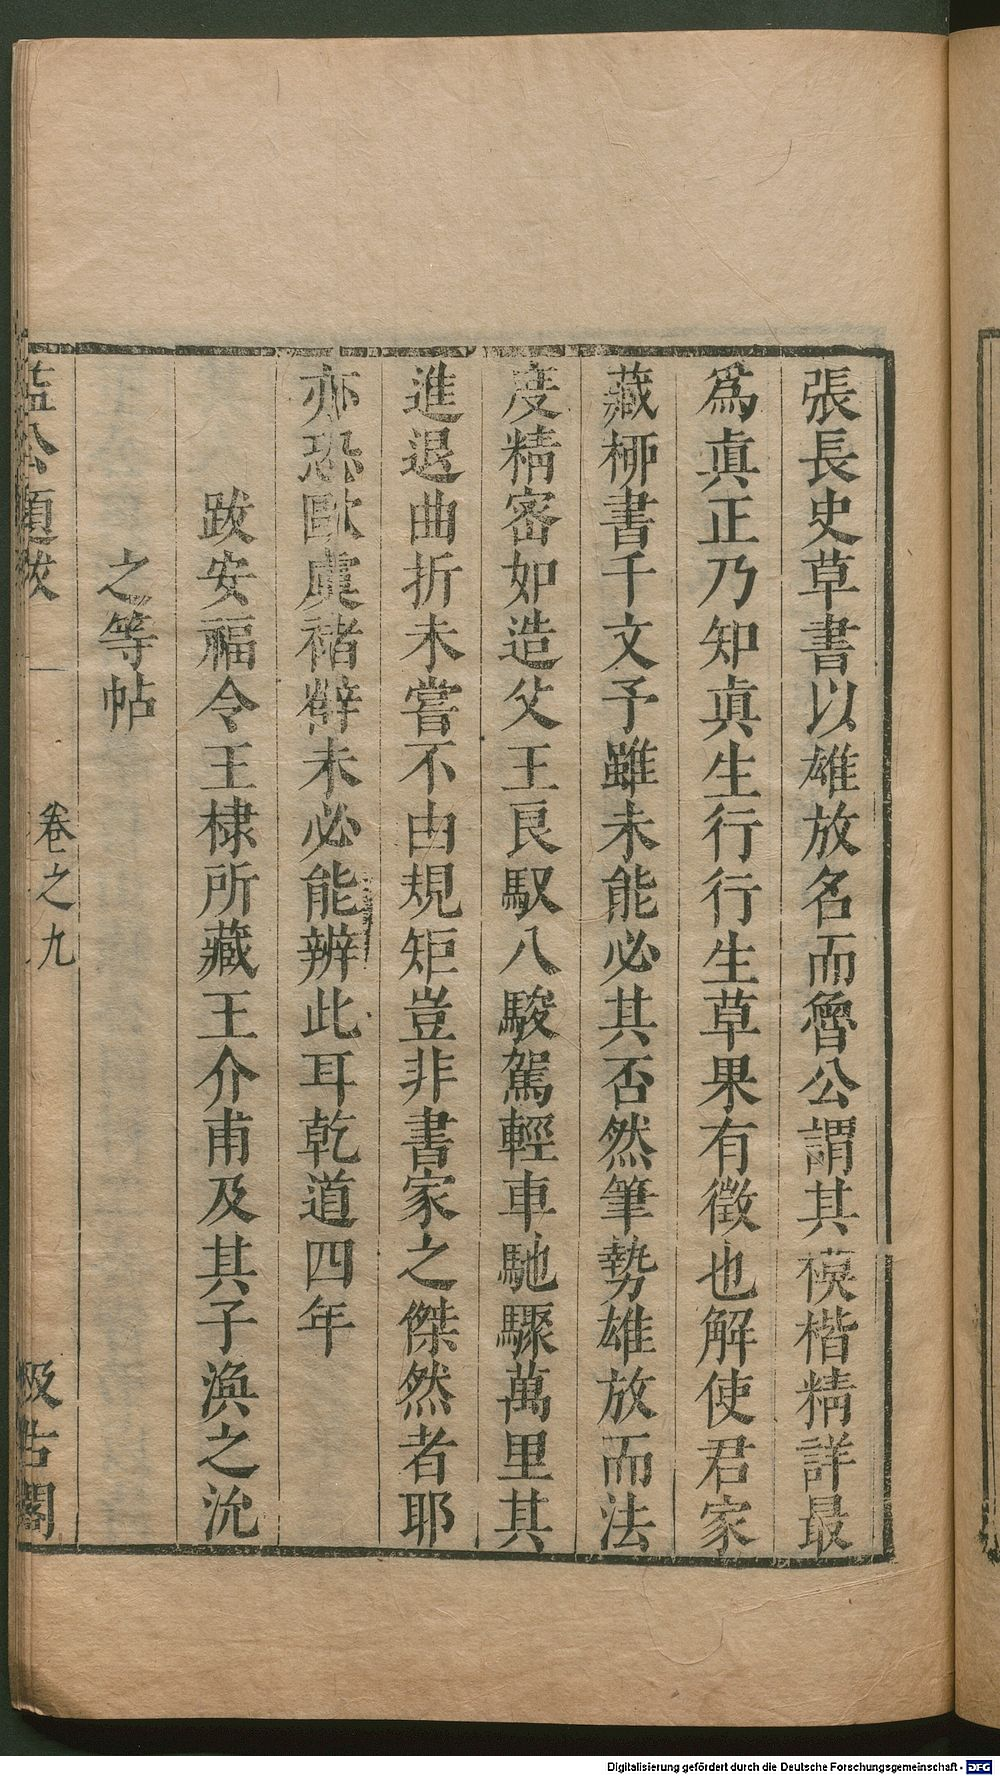 張長史草書以雄放名而魯公謂其模楷精詳最
爲眞正乃知眞生行行生草果有徵也解使君家
藏栁書千文予雖未能必其否然筆勢雄放而法
度精密如造父王良馭八駿駕輕車馳驟萬里其
進退曲折未嘗不由規矩豈非書家之傑然者耶
亦恐歐虞褚薛未必能辨此耳乾道四年
跋安福令王棣所藏王介甫及其子渙之沇
之等帖
益公題跋
卷之九
一
汲古閣
Digitalisierung gefördert durch die Deutsche Forschungsgemeinschaft - DFG